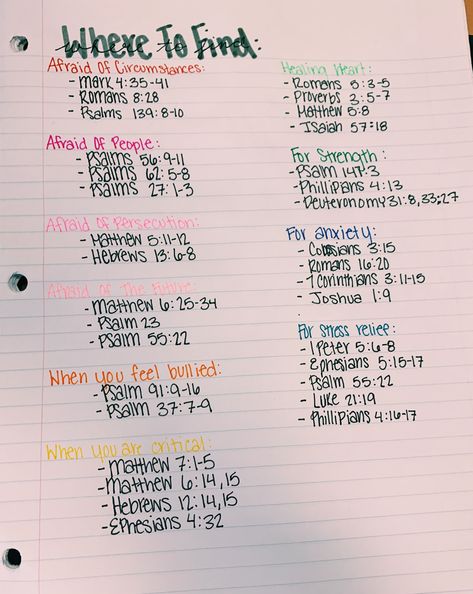 Where To Find:
Afraid Of Circumstances:
- Mark 4:35-41
- Romans 8:28
- Psalms 139:8-10
Afraid Of People:
- Psalms 56:9-11
- Psalms 62:5-8
- Psalms 27:1-3
Afraid Of Persecution:
- Matthew 5:11-12
- Hebrews 13:6-8
Afraid Of The Future:
- Matthew 6:25-34
- Psalm 23
- Psalm 55:22
When you feel bullied:
- Psalm 91:9-16
- Psalm 37:7-9
When you are critical:
- Matthew 7:1-5
- Matthew 6:14,15
- Hebrews 12:14,15
- Ephesians 4:32
Healing Heart:
- Romans 5:3-5
- Proverbs 3:5-7
- Matthew 5:8
- Isaiah 57:18
For Strength:
- Psalm 147:3
- Phillipians 4:13
- Deuteronomy 31:8, 33:27
For anxiety:
- Colossians 3:15
- Romans 16:20
- 1 Corinthians 3:11-15
- Joshua 1:9
For stress relief:
- 1 Peter 5:6-8
- Ephesians 5:15-17
- Psalm 55:22
- Luke 21:19
- Phillipians 4:16-17